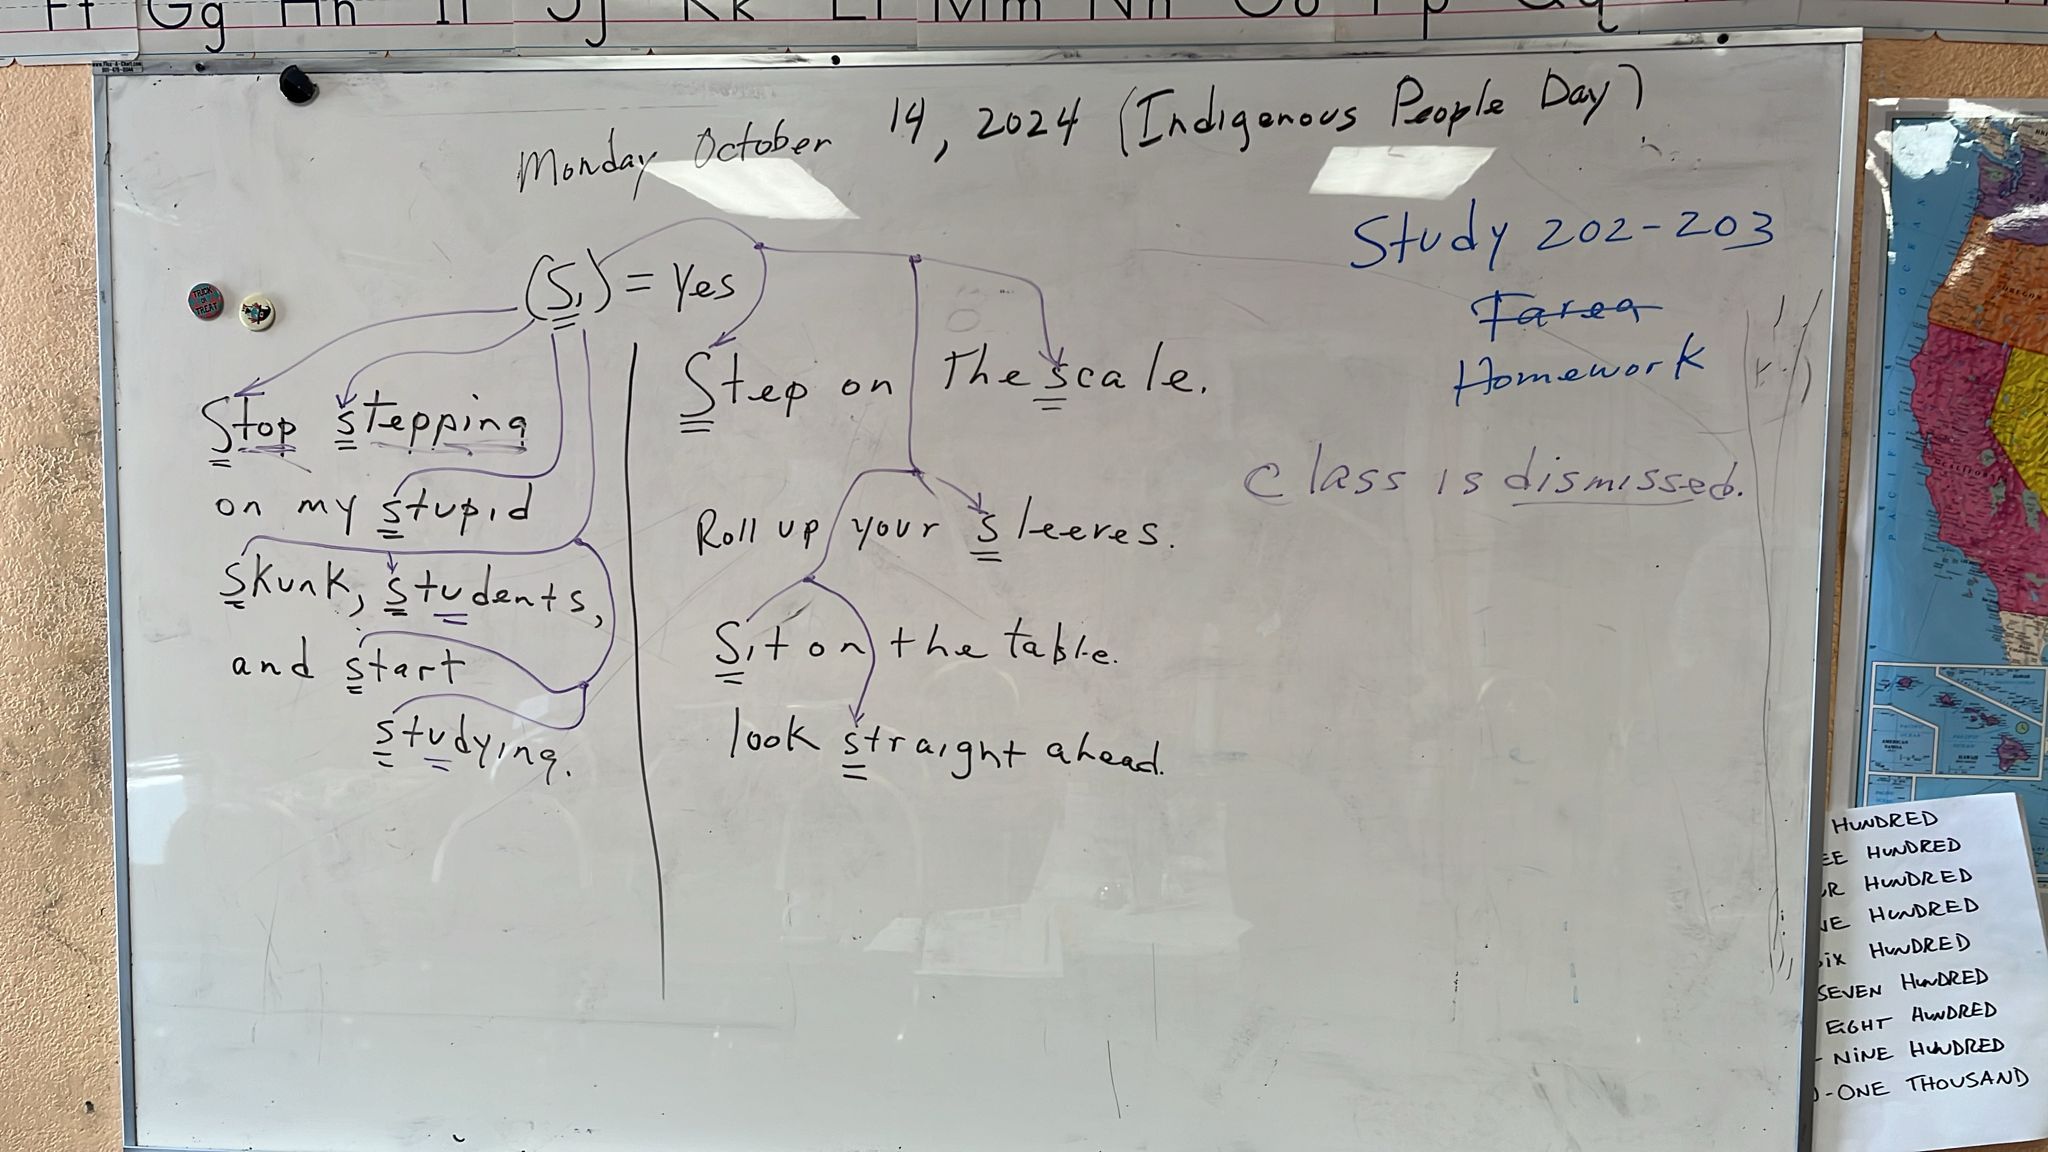 Ff Gg Hh Ii Jj Kk Ll Mm Nn Oo Pp Qq
Monday October 14, 2024 (Indigenous People Day)
(Si) = Yes
Stop stepping
on my stupid
skunk, students,
and start
studying.
Step on the scale.
Roll up your sleeves.
Sit on the table.
look straight ahead.
Study 202-203
Tarea
Homework
class is dismissed.
TRICK or TREAT
PACIFIC OCEAN
OREGON
CALIFORNIA
AMERICAN SAMOA
HAWAII
HUNDRED
HUNDRED
HUNDRED
HUNDRED
SIX HUNDRED
SEVEN HUNDRED
EIGHT HUNDRED
- NINE HUNDRED
-ONE THOUSAND